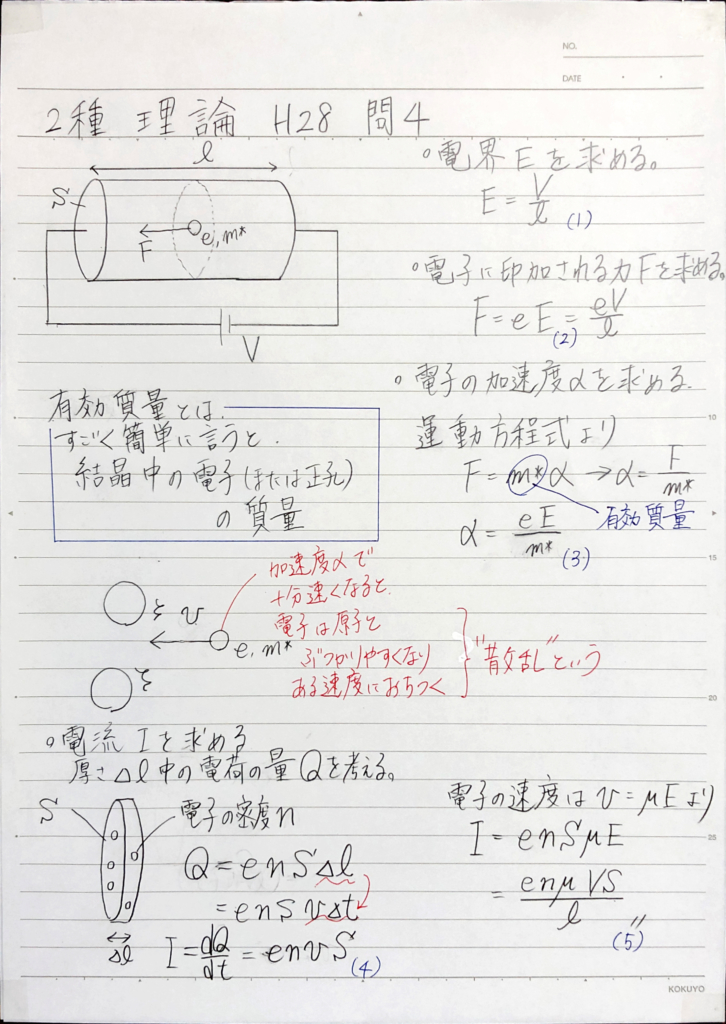 NO.
DATE
2種 理論 H28 問4
l
S
F
e, m*
V
○電界Eを求める。
E = V/l (1)
○電子に印加される力Fを求める。
F = eE = eV/l
(2)
○電子の加速度αを求める.
運動方程式より
F = m*α → α = F/m*
有効質量
α = eE/m* (3)
有効質量とは.
すごく簡単に言うと.
結晶中の電子(または正孔)
の質量
v
e, m*
加速度αで
十分速くなると.
電子は原子と
ぶつかりやすくなり
ある速度におちつく
"散乱"という
○電流Iを求める
厚さΔl中の電荷の量Qを考える。
S
電子の密度n
Δl
Q = enSΔl
= enSvΔt
I = dQ/dt = envS (4)
電子の速度は v = μE より
I = enSμE
= enμVS/l 〃
(5)
10
15
20
25
KOKUYO